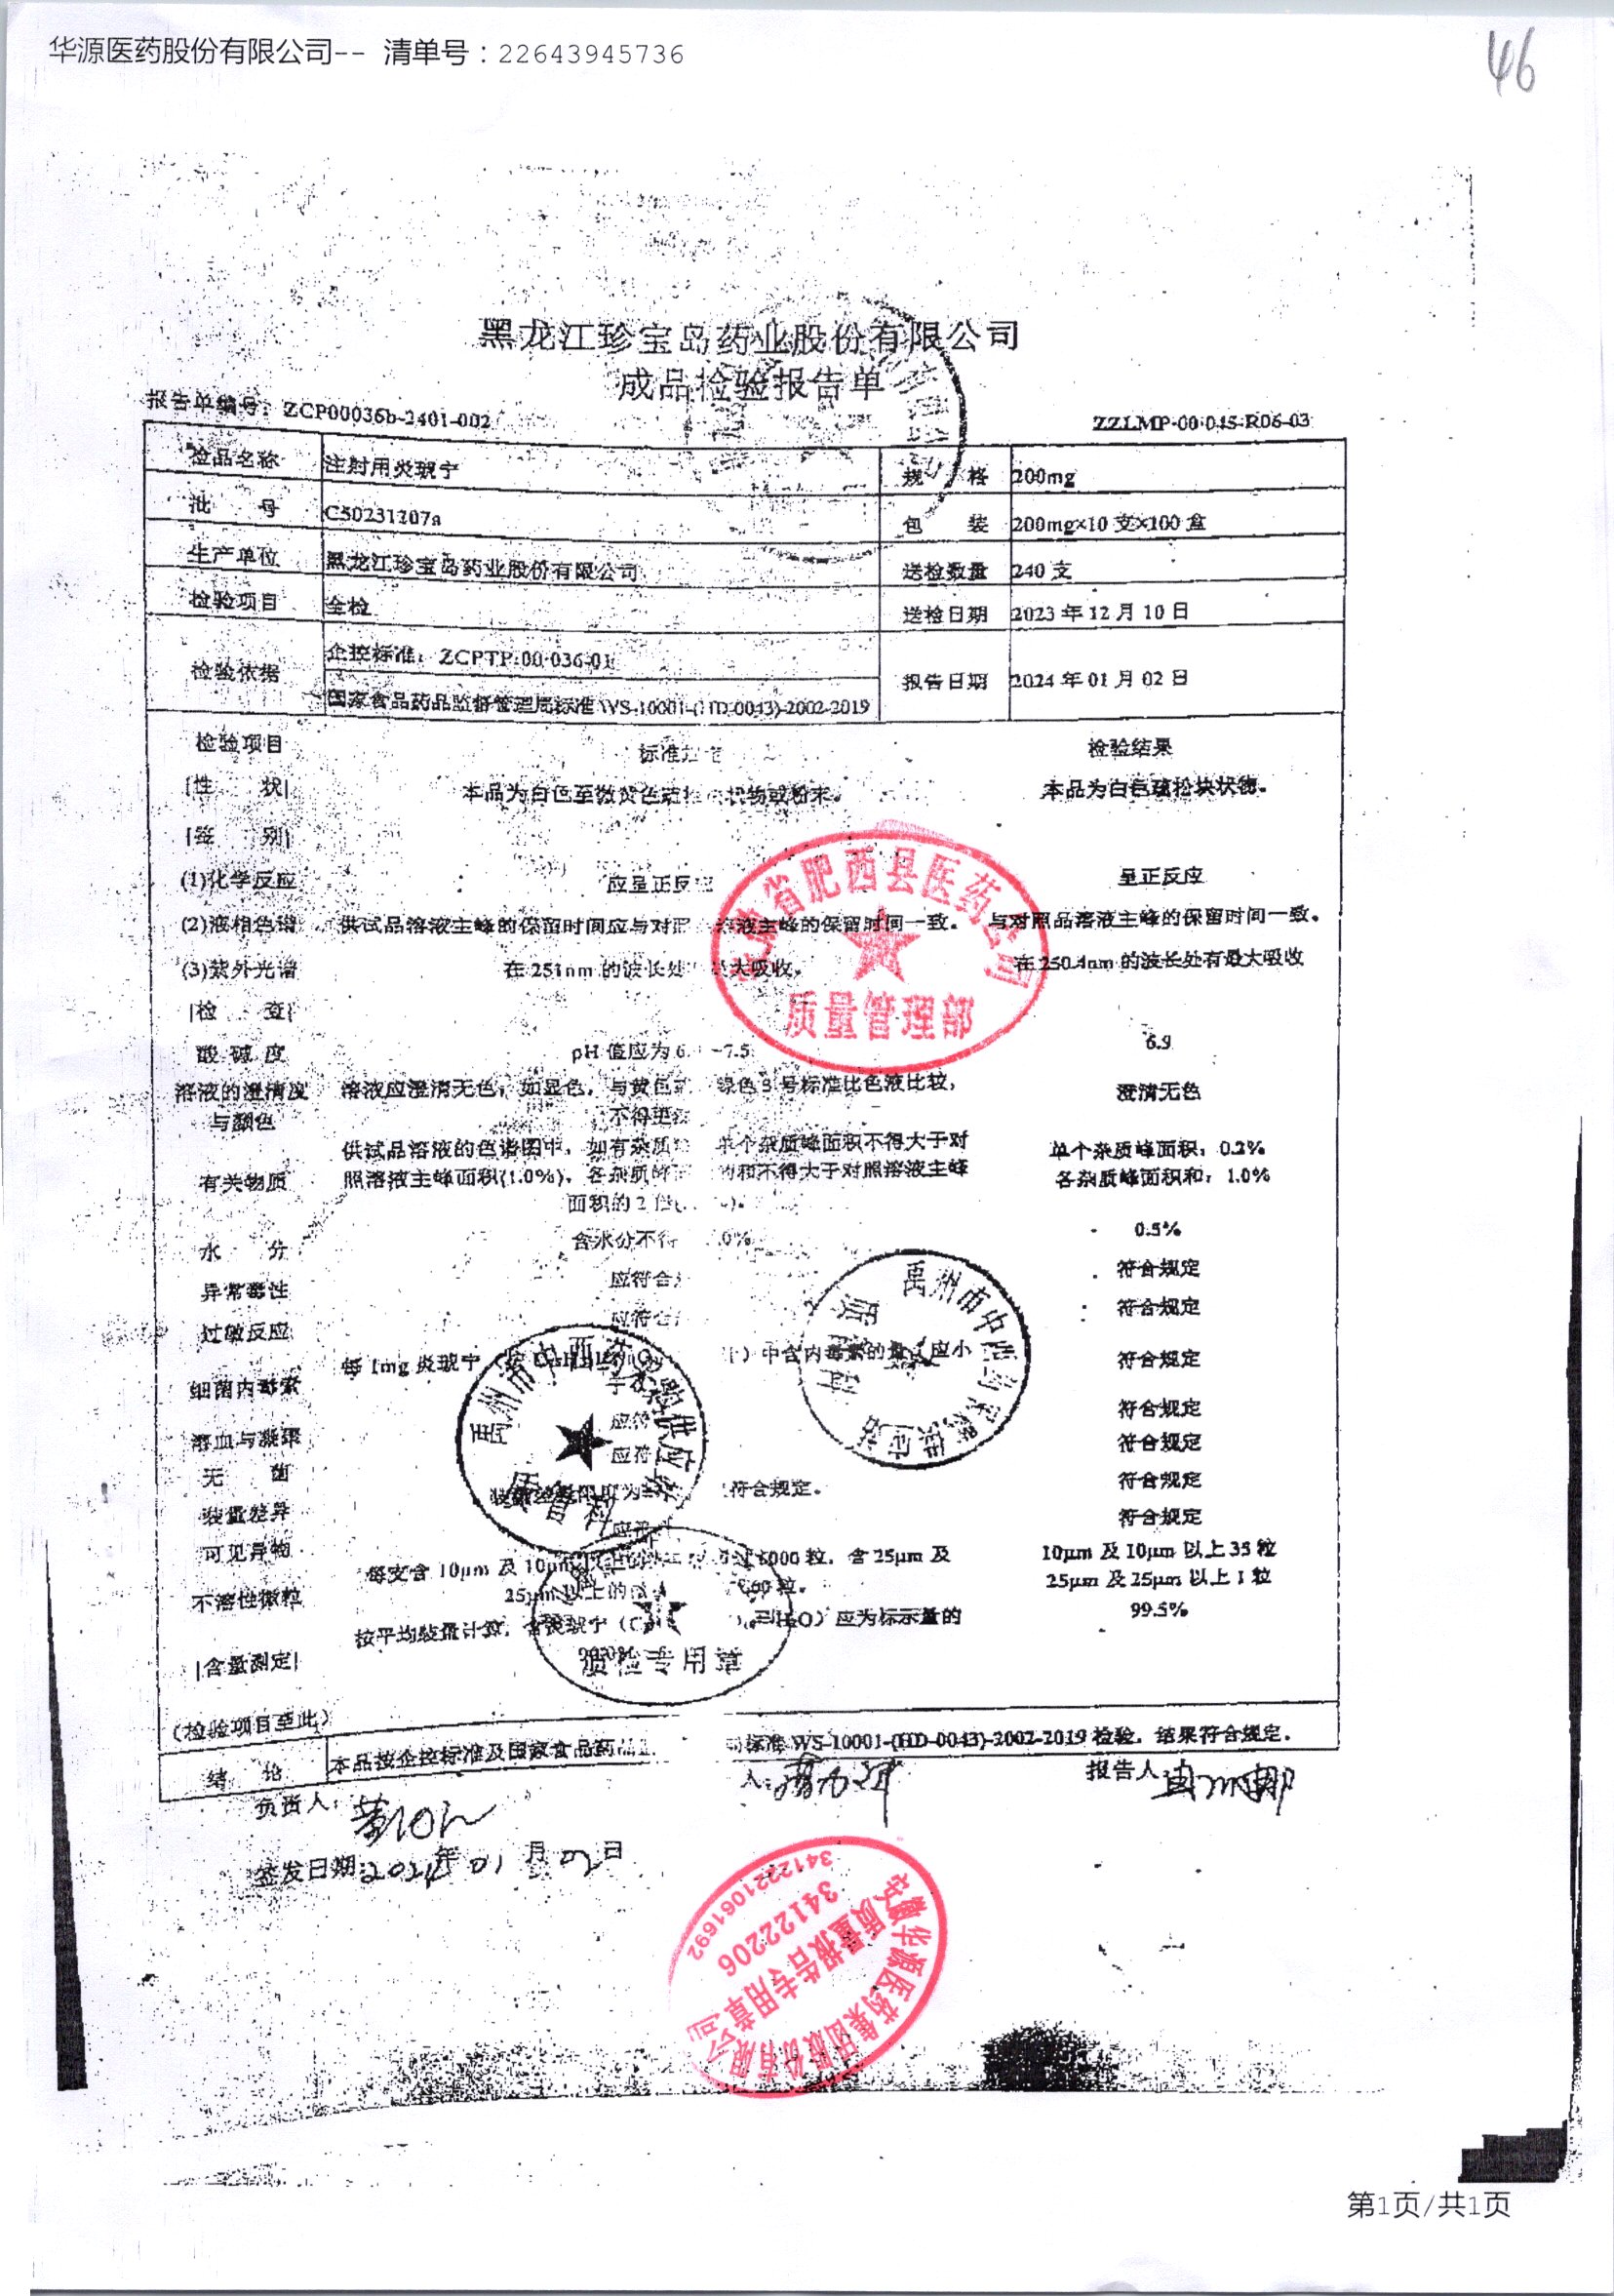 华源医药股份有限公司-- 清单号：22643945736
46
黑龙江珍宝岛药业股份有限公司
成品检验报告单
报告单编号：ZCP00036b-2401-002 ZZLMP-00·045-R06-03
检品名称 注射用炎琥宁 规 格 200mg
批 号 C50231207a 包 装 200mg×10 支×100 盒
生产单位 黑龙江珍宝岛药业股份有限公司 送检数量 240 支
检验项目 全检 送检日期 2023 年 12 月 10 日
检验依据 企控标准：ZCPTP·00·036-01 报告日期 2024 年 01 月 02 日
国家食品药品监督管理局标准 WS-10001-(HD-0043)-2002-2019
检验项目 标准 检验结果
[性 状] 本品为白色至微黄色 状物或粉末。 本品为白色疏松块状物。
[鉴 别]
(1)化学反应 应呈正反应 呈正反应
(2)液相色谱 供试品溶液主峰的保留时间应与对照 溶液主峰的保留时间一致。 与对照品溶液主峰的保留时间一致。
(3)紫外光谱 在 251nm 的波长处 大吸收。 在 250.4nm 的波长处有最大吸收
[检 查]
酸 碱 度 pH 值应为 6. -7.5 6.9
溶液的澄清度与颜色 溶液应澄清无色；如显色，与黄色 绿色 3 号标准比色液比较， 澄清无色
不得更
有关物质 供试品溶液的色谱图中，如有杂质 单个杂质峰面积不得大于对 单个杂质峰面积：0.2%
照溶液主峰面积(1.0%)，各杂质峰 的和不得大于对照溶液主峰 各杂质峰面积和：1.0%
面积的 2 倍
水 分 含水分不得 0% 0.5%
异常毒性 应符合 符合规定
过敏反应 应符合 符合规定
细菌内毒素 每 1mg 炎琥宁 中含内毒素的量应小 符合规定
溶血与凝聚 应符 符合规定
无 菌 应符 符合规定
装量差异 装量差异限度为 符合规定。 符合规定
可见异物 应符 符合规定
不溶性微粒 每支含 10μm 及 10μm 6000 粒，含 25μm 及 10μm 及 10μm 以上 35 粒
25μm 以上的 600 粒。 25μm 及 25μm 以上 1 粒
[含量测定] 按平均装量计算，含炎琥宁 H₂O）应为标示量的 99.5%
（检验项目至此）
结 论 本品按企控标准及国家食品药品 标准 WS-10001-(HD-0043)-2002-2019 检验，结果符合规定。
负责人： 人： 报告人：
签发日期：2024年 01 月 02日
安徽省肥西县医药公司
质量管理部
禹州市中西药采购供应站
质管科
禹州市中西药采购供应站
质管科
质检专用章
安徽华源医药集团股份有限公司
质量报告专用章
34122206
3412221061692
第1页/共1页